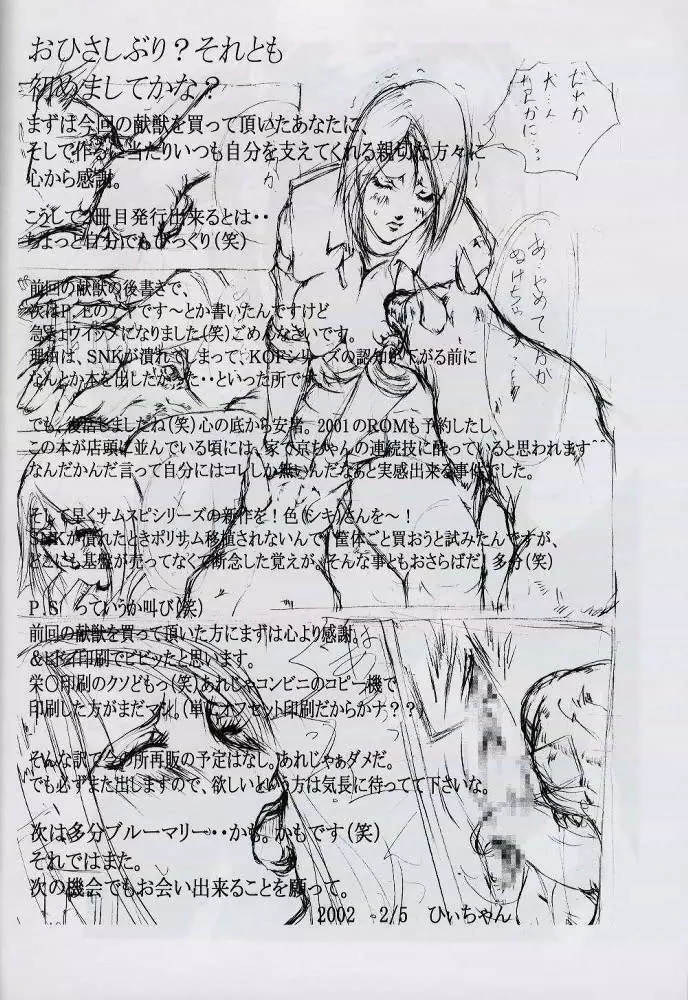 おひさしぶり？それとも
初めましてかな？
まずは今回の献獣を買って頂いたあなたに、
そして作るに当たりいつも自分を支えてくれる親切な方々に
心から感謝。
こうして2冊目発行出来るとは・・
ちょっと自分でもびっくり(笑)
前回の献獣の後書きで、
次はP.Eのアヤです～とか書いたんですけど
急きょウイップになりました(笑)ごめんなさいです。
理由は、SNKが潰れてしまって、KOFシリーズの認知が下がる前に
なんとか本を出したかった・・といった所です。
でも、復活しましたね(笑)心の底から安堵。2001のROMも予約したし、
この本が店頭に並んでいる頃には、家で京ちゃんの連続技に酔っていると思われます^^
なんだかんだ言って自分にはコレしか無いんだなあと実感出来る事件でした。
そして早くサムスピシリーズの新作を！色(シキ)さんを～！
SNKが潰れたときポリサム移植されないんで、筐体ごと買おうと試みたんですが、
どこにも基盤が売ってなくて断念した覚えが。そんな事ともおさらばだ！多分(笑)
P.S っていうか叫び(笑)
前回の献獣を買って頂いた方にまずは心より感謝。
＆ヒドイ印刷でビビッたと思います。
栄○印刷のクソどもっ(笑)あれじゃコンビニのコピー機で
印刷した方がまだマシ。(単にオフセット印刷だからかナ？？
そんな訳で今の所再販の予定はなし。あれじゃぁダメだ。
でも必ずまた出しますので、欲しいという方は気長に待ってて下さいな。
次は多分ブルーマリー・・かも。かもです(笑)
それではまた。
次の機会でもお会い出来ることを願って。
2002 2/5 ひぃちゃん